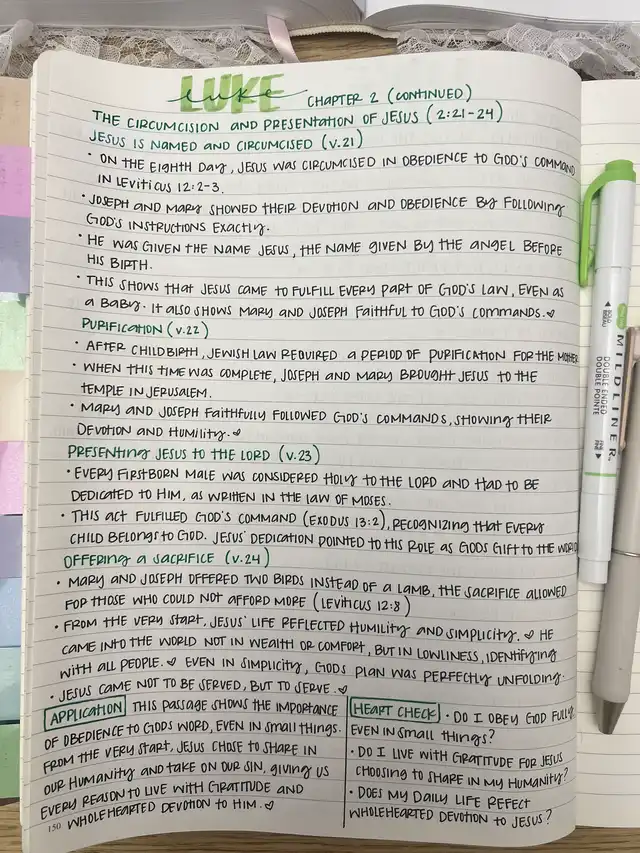 LUKE
luke
CHAPTER 2 (CONTINUED)
THE CIRCUMCISION AND PRESENTATION OF JESUS (2:21-24)
JESUS IS NAMED AND CIRCUMCISED (v.21)
• ON THE EIGHTH DAY, JESUS WAS CIRCUMCISED IN OBEDIENCE TO GOD'S COMMAND
IN LEVITICUS 12:2-3.
• JOSEPH AND MARY SHOWED THEIR DEVOTION AND OBEDIENCE BY FOLLOWING
GOD'S INSTRUCTIONS EXACTLY.
• HE WAS GIVEN THE NAME JESUS, THE NAME GIVEN BY THE ANGEL BEFORE
HIS BIRTH.
• THIS SHOWS THAT JESUS CAME TO FULFILL EVERY PART OF GOD'S LAW, EVEN AS
A BABY. IT ALSO SHOWS MARY AND JOSEPH FAITHFUL TO GOD'S COMMANDS. ♡
PURIFICATION (v.22)
• AFTER CHILDBIRTH, JEWISH LAW REQUIRED A PERIOD OF PURIFICATION FOR THE MOTHER.
• WHEN THIS TIME WAS COMPLETE, JOSEPH AND MARY BROUGHT JESUS TO THE
TEMPLE IN JERUSALEM.
• MARY AND JOSEPH FAITHFULLY FOLLOWED GOD'S COMMANDS, SHOWING THEIR
DEVOTION AND HUMILITY. ♡
PRESENTING JESUS TO THE LORD (v.23)
• EVERY FIRSTBORN MALE WAS CONSIDERED HOLY TO THE LORD AND HAD TO BE
DEDICATED TO HIM, AS WRITTEN IN THE LAW OF MOSES.
• THIS ACT FULFILLED GOD'S COMMAND (EXODUS 13:2), RECOGNIZING THAT EVERY
CHILD BELONGS TO GOD. JESUS' DEDICATION POINTED TO HIS ROLE AS GODS GIFT TO THE WORLD
OFFERING A SACRIFICE (v.24)
• MARY AND JOSEPH OFFERED TWO BIRDS INSTEAD OF A LAMB, THE SACRIFICE ALLOWED
FOR THOSE WHO COULD NOT AFFORD MORE (LEVITICUS 12:8)
• FROM THE VERY START, JESUS' LIFE REFLECTED HUMILITY AND SIMPLICITY. ♡ HE
CAME INTO THE WORLD NOT IN WEALTH OR COMFORT, BUT IN LOWLINESS, IDENTIFYING
WITH ALL PEOPLE. ♡ EVEN IN SIMPLICITY, GODS PLAN WAS PERFECTLY UNFOLDING.
• JESUS CAME NOT TO BE SERVED, BUT TO SERVE. ♡
APPLICATION THIS PASSAGE SHOWS THE IMPORTANCE
OF OBEDIENCE TO GODS WORD, EVEN IN SMALL THINGS.
FROM THE VERY START, JESUS CHOSE TO SHARE IN
OUR HUMANITY AND TAKE ON OUR SIN, GIVING US
EVERY REASON TO LIVE WITH GRATITUDE AND
WHOLEHEARTED DEVOTION TO HIM. ♡
HEART CHECK • DO I OBEY GOD FULLY,
EVEN IN SMALL THINGS?
• DO I LIVE WITH GRATITUDE FOR JESUS
CHOOSING TO SHARE IN MY HUMANITY?
• DOES MY DAILY LIFE REFECT
WHOLEHEARTED DEVOTION TO JESUS?
150
MILDLINER
DOUBLE ENDED
DOUBLE POINTE